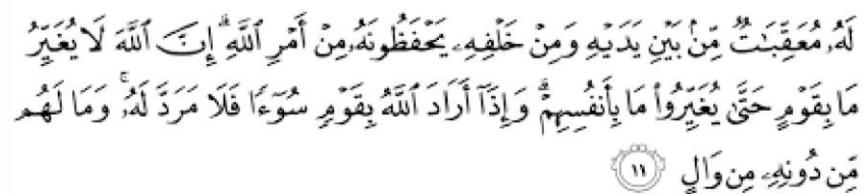 لَهُۥ مُعَقِّبَٰتٌ مِّنۢ بَيْنِ يَدَيْهِ وَمِنْ خَلْفِهِۦ يَحْفَظُونَهُۥ مِنْ أَمْرِ ٱللَّهِ ۗ إِنَّ ٱللَّهَ لَا يُغَيِّرُ
مَا بِقَوْمٍ حَتَّىٰ يُغَيِّرُوا۟ مَا بِأَنفُسِهِمْ ۗ وَإِذَآ أَرَادَ ٱللَّهُ بِقَوْمٍ سُوٓءًا فَلَا مَرَدَّ لَهُۥ ۚ وَمَا لَهُم
مِّن دُونِهِۦ مِن وَالٍ ١١